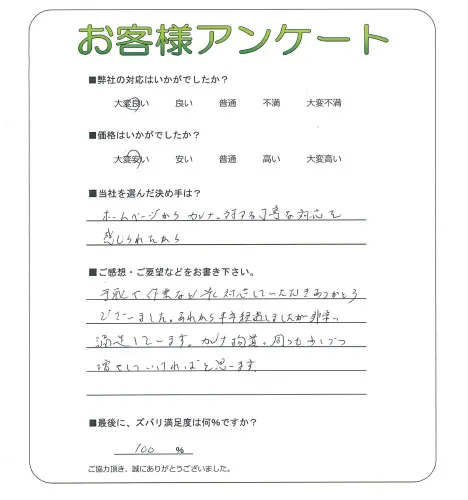 お客様アンケート
■弊社の対応はいかがでしたか？
大変良い 良い 普通 不満 大変不満
■価格はいかがでしたか？
大変安い 安い 普通 高い 大変高い
■当社を選んだ決め手は？
ホームページから カナに対する丁寧な対応を
感じられたから
■ご感想・ご要望などをお書き下さい。
作業など 対応していただきありがとう
ございました。あれから半年経過しましたが非常に
満足しています。カナ 物置、周りも少しづつ
増やしていければと思います
■最後に、ズバリ満足度は何％ですか？
100 ％
ご協力頂き、誠にありがとうございました。